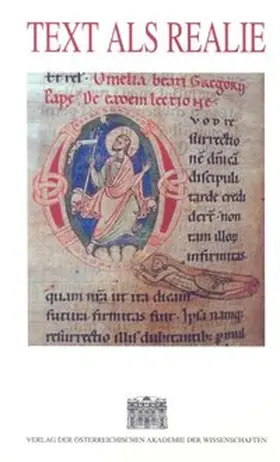 TEXT ALS REALIE
et rel. Omelia beati Gregorii
Pape. De eadem lectione.
vod re
surrectio
nē dñicā
discipuli
tarde credi
derēt. non
tam illoꝝ
infirmitas.
quam nr̄a ut ita dicam
futura firmitas fuit. Ipsa namq;
resurrectio illis dubitantibꝫ p
VERLAG DER ÖSTERREICHISCHEN AKADEMIE DER WISSENSCHAFTEN